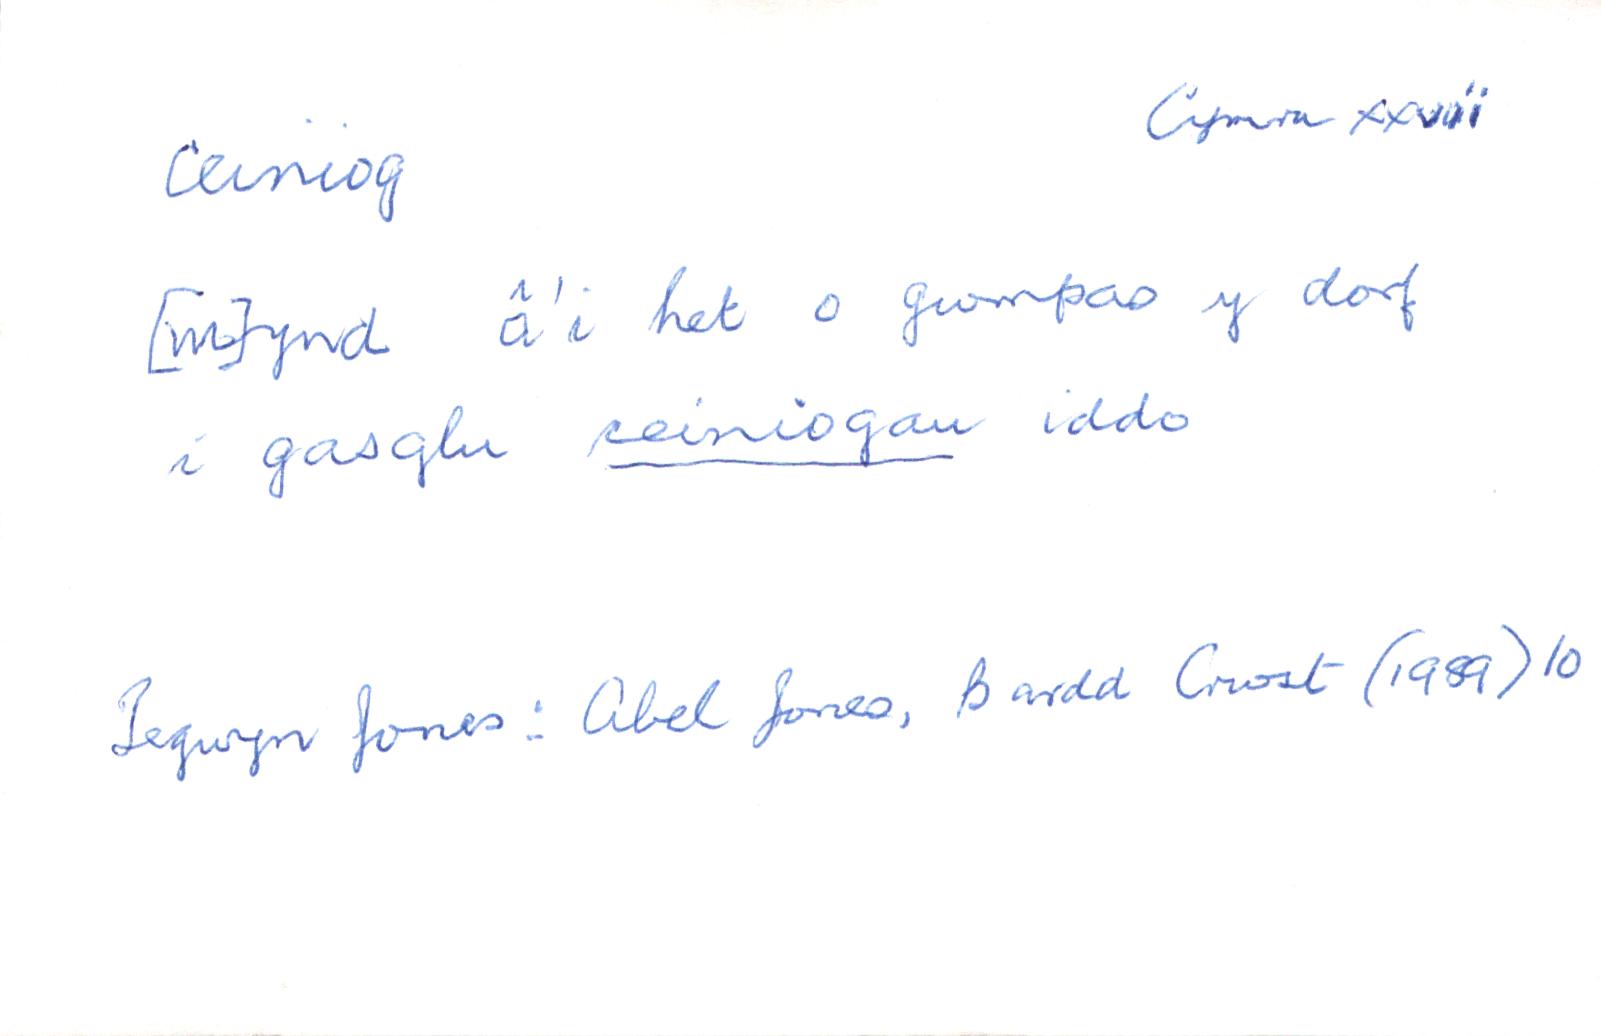 Cymru xxviii
ceiniog
[m]ynd â'i het o gwmpas y dorf
i gasglu ceiniogau iddo
Tegwyn Jones: Abel Jones, Bardd Crwst (1989) 10